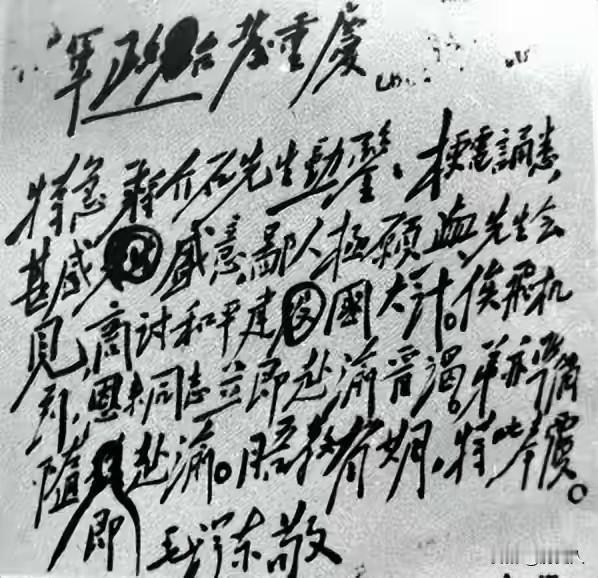 軍政台發重慶
特急 蒋介石先生勳鑒：梗電誦悉，
甚感盛意。鄙人極願與先生会
見，商討和平建國大計。俟飛机
到，恩来同志立即赴渝晋謁。弟亦準備
隨赴渝。晤教有期，特此奉覆。
即 毛泽东敬